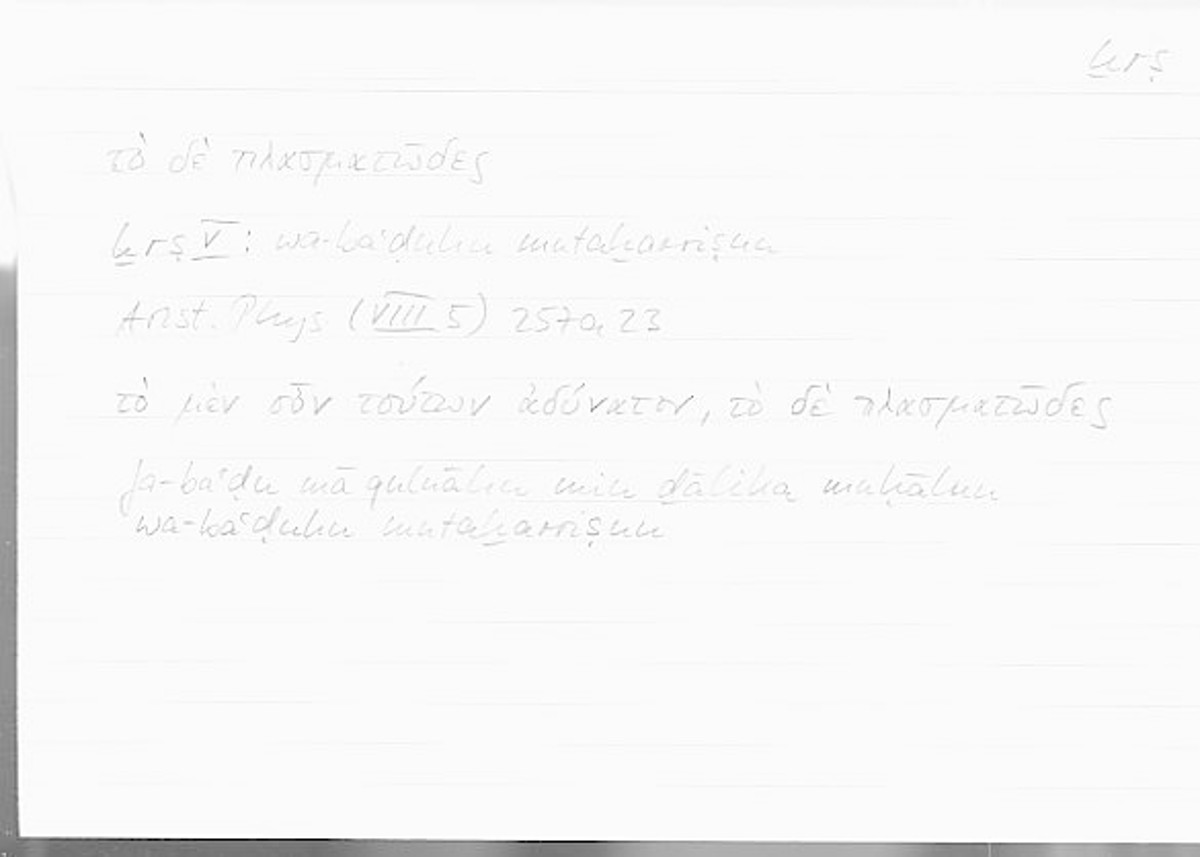 ḫrṣ
τὸ δὲ πλασματῶδες
ḫrṣ V: wa-baʿḍuhu mutaḫarriṣun
Arist. Phys (VIII 5) 257a 23
τὸ μὲν οὖν τούτων ἀδύνατον, τὸ δὲ πλασματῶδες
fa-baʿḍu mā qulnāhu min ḏālika muḥālun
wa-baʿḍuhu mutaḫarriṣun